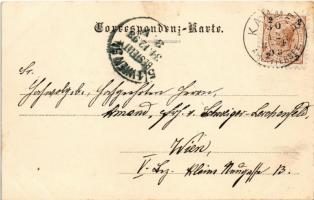 Correspondenz-Karte.
Sr.
Hochwolgeb. Hochgeboren Herrn,
Amand, Frh. v. Schweiger-Lerchenfeld,
Wien,
V. Bez. Kleine Neugasse 13.